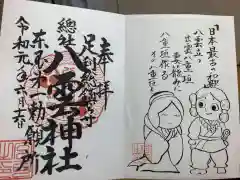 「日本最古の和歌」
八雲立つ
出雲八重垣
妻籠みに
八重垣作る
その八重垣を
奉拝
足利総鎮守
總社
八雲神社
一勅願所
令和元年六月六日